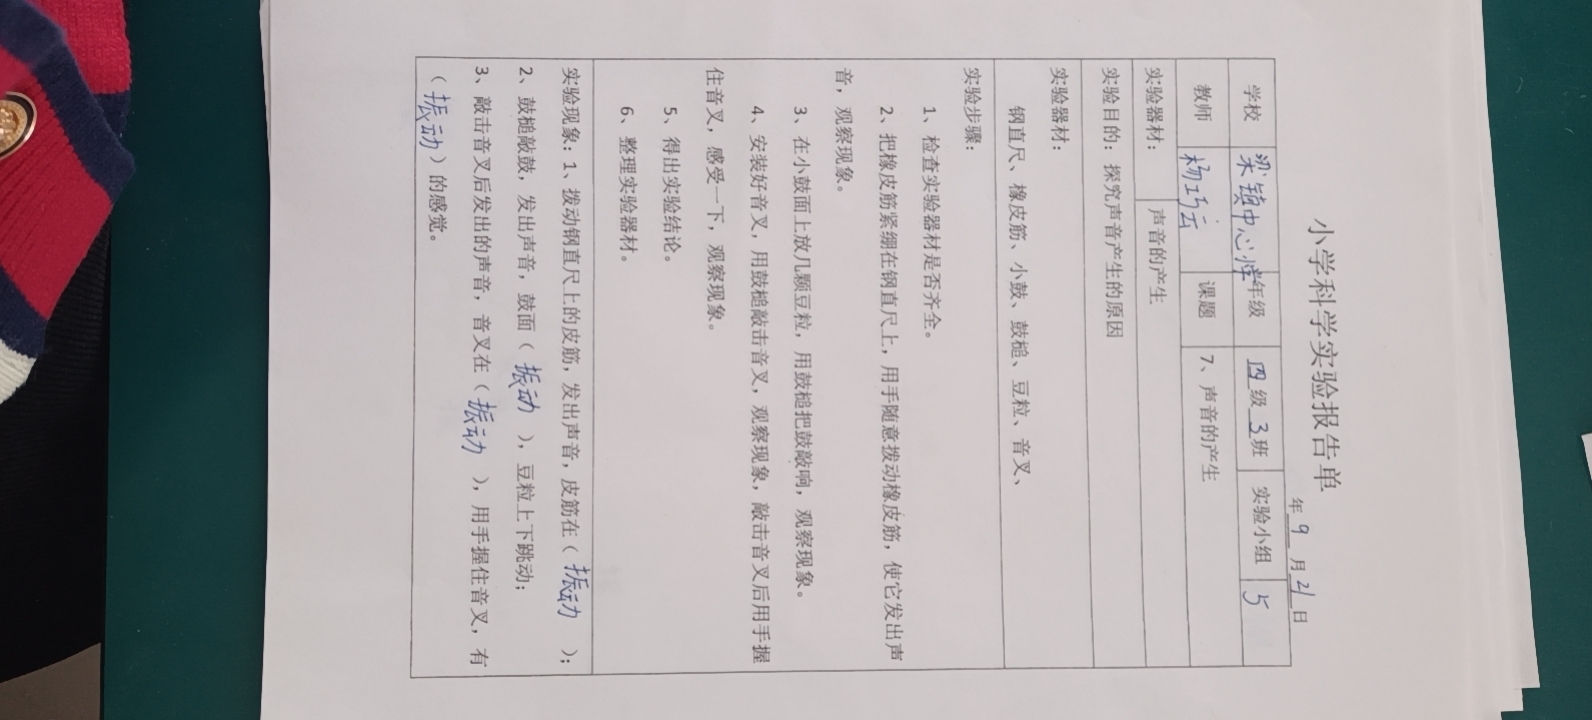 小学科学实验报告单
年 9 月 21 日
学校 梁镇中心小学 年级 四级 3 班 实验小组 5
教师 杨巧云 课题 7、声音的产生
实验器材： 声音的产生
实验目的：探究声音产生的原因
实验器材：
钢直尺、橡皮筋、小鼓、鼓槌、豆粒、音叉、
实验步骤：
1、检查实验器材是否齐全。
2、把橡皮筋紧绷在钢直尺上，用手随意拨动橡皮筋，使它发出声
音，观察现象。
3、在小鼓面上放几颗豆粒，用鼓槌把鼓敲响，观察现象。
4、安装好音叉，用鼓槌敲击音叉，观察现象，敲击音叉后用手握
住音叉，感受一下，观察现象。
5、得出实验结论。
6、整理实验器材。
实验现象：1、拨动钢直尺上的皮筋，发出声音，皮筋在（ 振动 ）；
2、鼓槌敲鼓，发出声音，鼓面（ 振动 ），豆粒上下跳动；
3、敲击音叉后发出的声音，音叉在（ 振动 ），用手握住音叉，有
（ 振动 ）的感觉。